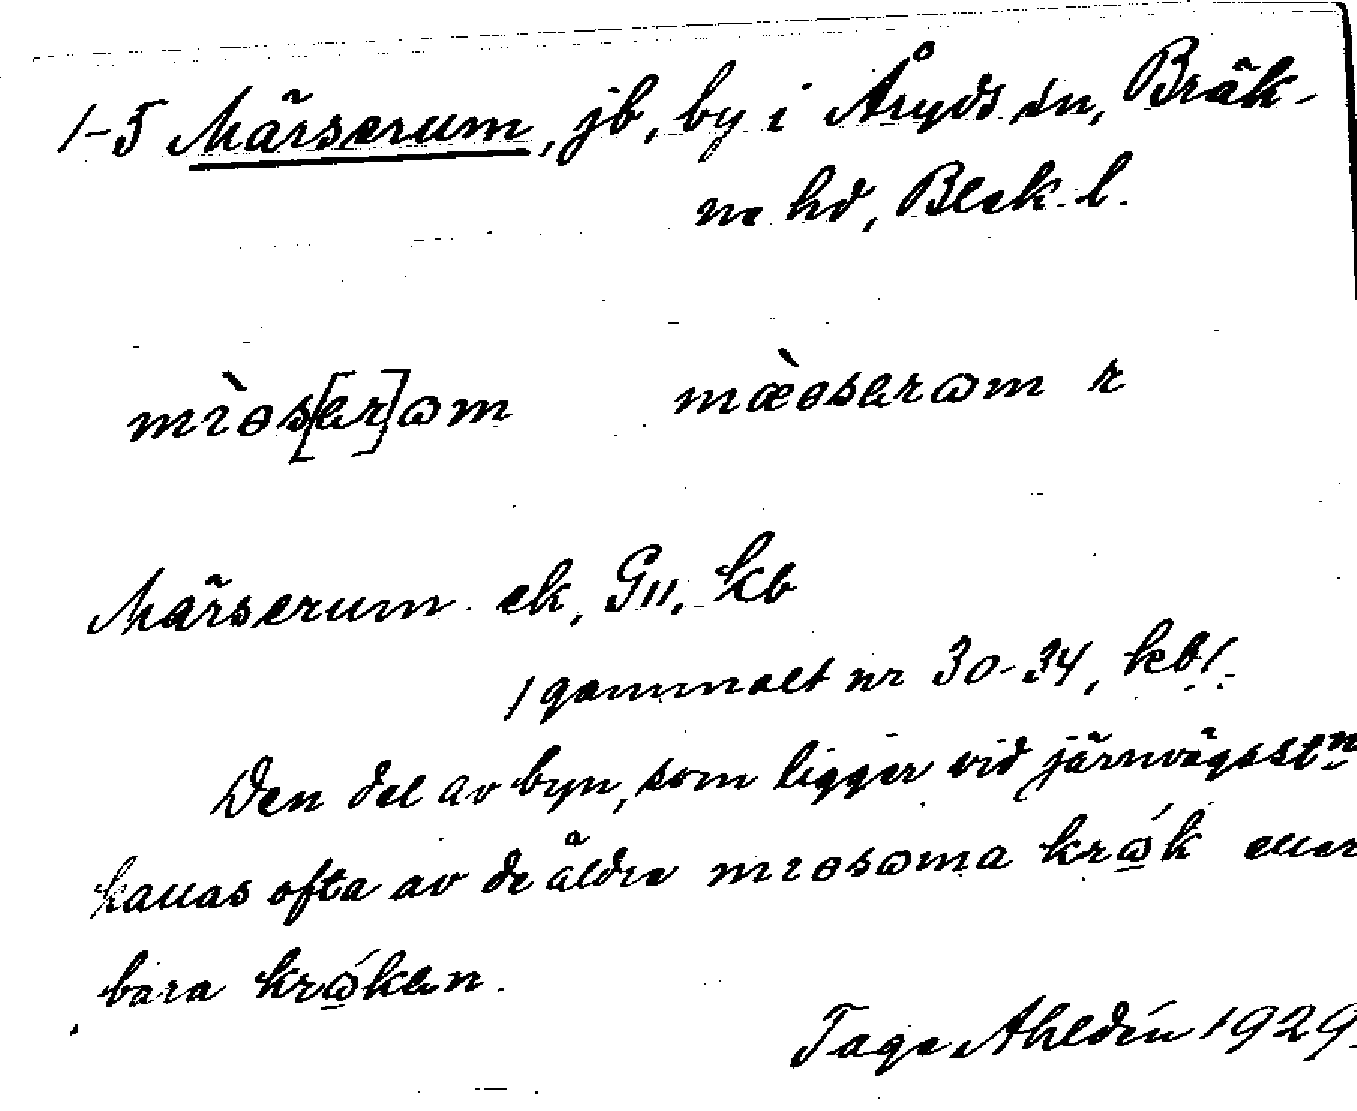 1-5 Märserum, jb, by i Åryds sn, Bräk-
ne hd, Blek. l.
mìɵs[ɐr]ɷm mæ̀ɵsɐrɷm r
Märserum ek, G11, kb
/gammalt nr 30-34, kb/.
Den del av byn, som ligger vid järnvägsstn
kallas ofta av de äldre mıɵsɷma krɷ́k eller
bara krɷ́kɐn.
Tage Ahldén 1929.